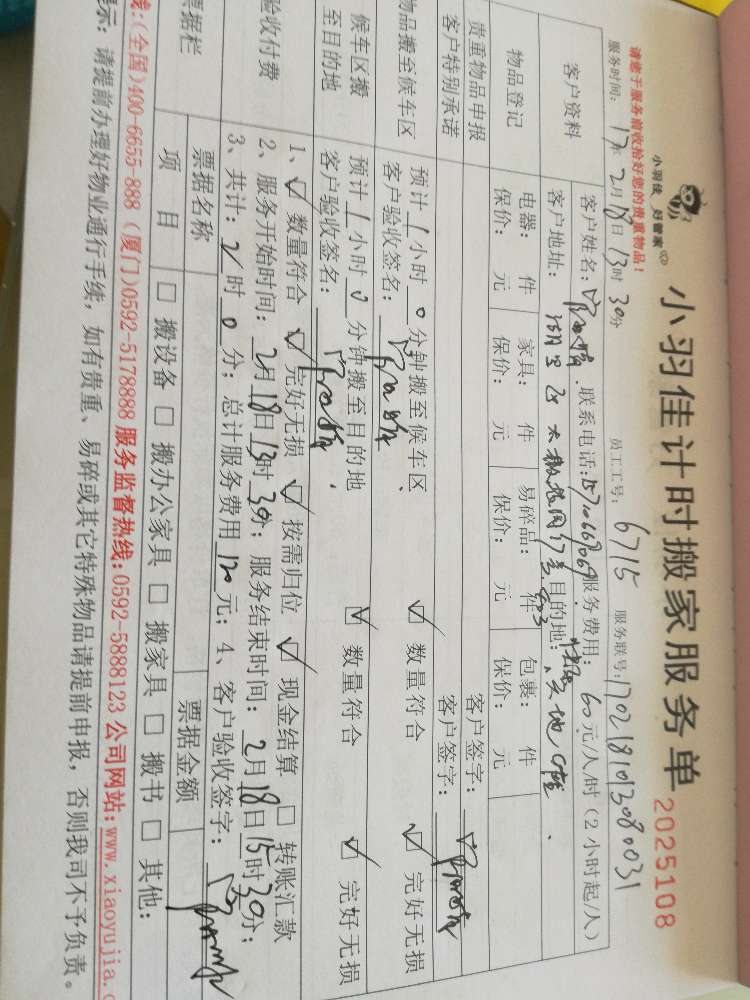 小羽佳计时搬家服务单
2025108
小羽佳 好管家
请您于服务前收拾好您的贵重物品!
服务时间: 17年2月18日13时30分 员工工号: 6715 服务联号: 1702181013080031
客户资料
客户姓名: 联系电话: 服务费用: 60元/人/时(2小时起/人)
客户地址: 目的地:
物品登记
电器: 件 家具: 件 易碎品: 件 包裹: 件
保价: 元 保价: 元 保价: 元 保价: 元
贵重物品申报 客户签字:
客户特别承诺 客户签字:
物品搬至候车区
预计1小时0分钟搬至候车区、 ☑ 数量符合 ☑ 完好无损
客户验收签名:
候车区搬至目的地
预计1小时0分钟搬至目的地、 ☑ 数量符合 ☑ 完好无损
客户验收签名:
验收付费
1、☑ 数量符合 ☑ 完好无损 ☑ 按需归位 ☑ 现金结算 □ 转账汇款
2、服务开始时间: 2月18日13时30分; 服务结束时间: 2月18日15时30分;
3、共计: 2时0分; 总计服务费用120元; 4、客户验收签字:
票据栏
票据名称 票据金额
项目 □ 搬设备 □ 搬办公家具 □ 搬家具 □ 搬书 □ 其他:
线:(全国)400-6655-888 (厦门)0592-5178888 服务监督热线:0592-5888123 公司网站:www.xiaoyujia.c
示: 请提前办理好物业通行手续, 如有贵重、易碎或其它特殊物品请提前申报, 否则我司不予负责。